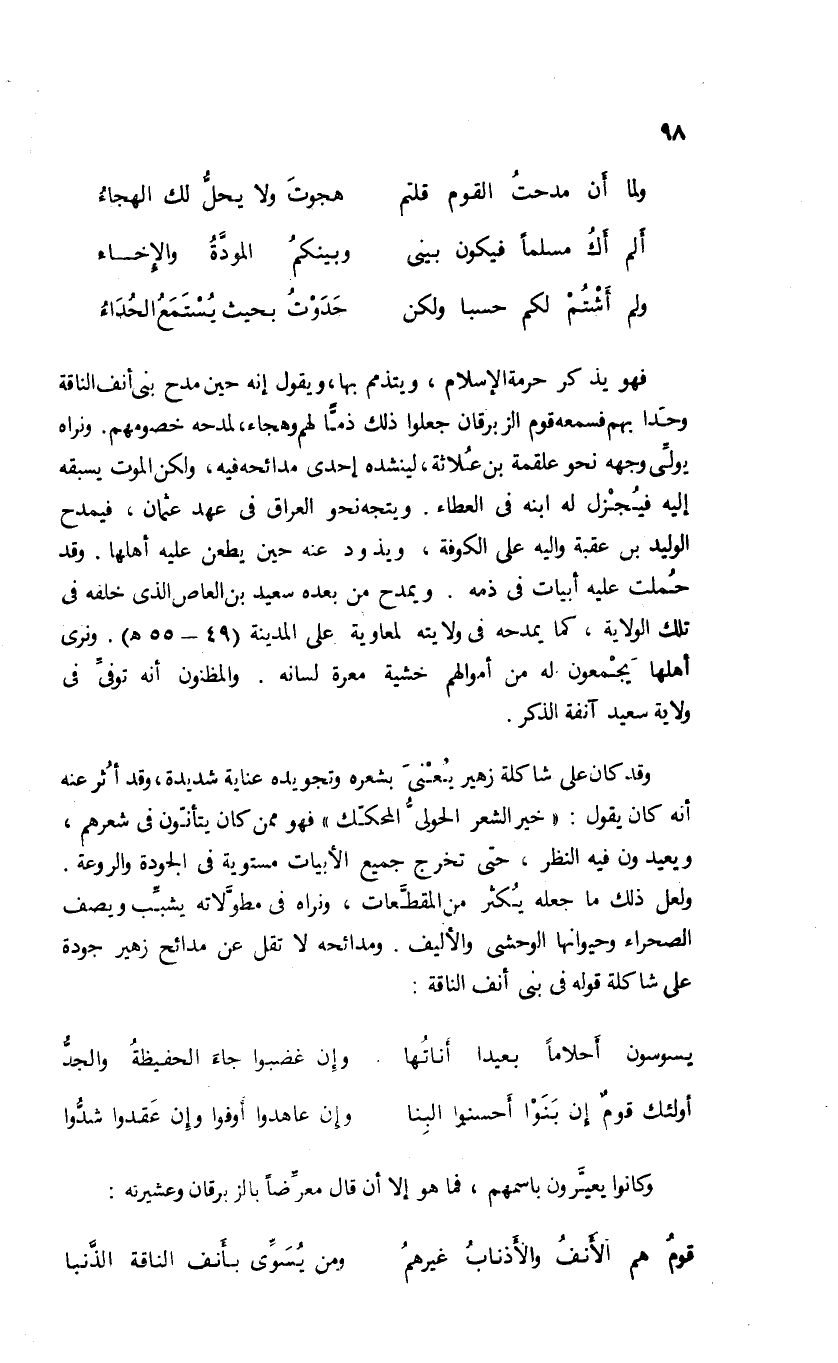 ٩٨
ولما أَن مدحتُ القوم قلتم هجوتَ ولا يحلُّ لك الهجاءُ
أَلم أَكُ مسلماً فيكون بينى وبينكمُ المودَّةُ والإِخاء
ولم أَشْتُمْ لكم حسبا ولكن حَدَوْتُ بحيث يُسْتَمَعُ الحُدَاءُ
فهو يذكر حرمة الإسلام ، ويتذمم بها ، ويقول إنه حين مدح بنى أنف الناقة
وحَدا بهم فسمعه قوم الزبرقان جعلوا ذلك ذمًّا لهم وهجاء ، لمدحه خصومهم . ونراه
يولِّى وجهه نحو علقمة بن عُلاثة ، لينشده إحدى مدائحه فيه ، ولكن الموت يسبقه
إليه فيُجْزل له ابنه فى العطاء . ويتجه نحو العراق فى عهد عثمان ، فيمدح
الوليد بن عقبة واليه على الكوفة ، ويذود عنه حين يطعن عليه أهلها . وقد
حُملت عليه أبيات فى ذمه . ويمدح من بعده سعيد بن العاص الذى خلفه فى
تلك الولاية ، كما يمدحه فى ولايته لمعاوية على المدينة (٤٩ – ٥٥ ه) . ونرى
أهلها يَجْمعون له من أموالهم خشية معرة لسانه . والمظنون أنه توفىِّ فى
ولاية سعيد آنفة الذكر .
وقد كان على شاكلة زهير يُعْنىَ بشعره وتجويده عناية شديدة ، وقد أُثر عنه
أنه كان يقول : « خير الشعر الحولىُّ المحكّك » فهو ممن كان يتأنّون فى شعرهم ،
ويعيدون فيه النظر ، حتى تخرج جميع الأبيات مستوية فى الجودة والروعة .
ولعل ذلك ما جعله يُكْثر من المقطَّعات ، ونراه فى مطوَّلاته يشبِّب ويصف
الصحراء وحيوانها الوحشى والأليف . ومدائحه لا تقل عن مدائح زهير جودة
على شاكلة قوله فى بنى أنف الناقة :
يسوسون أَحلاماً بعيدا أَناتُها وإِن غضبوا جاءَ الحفيظةُ والجدُّ
أولئك قومٌ إِن بَنَوْا أَحسنوا البِنا وإِن عاهدوا أَوفوا وإِن عَقَدوا شدُّوا
وكانوا يعيَّرون باسمهم ، فما هو إلا أن قال معرِّضاً بالزبرقان وعشيرته :
قومٌ هم الأَنفُ والأَذنابُ غيرهمُ ومن يُسَوِّى بأَنف الناقة الذَّنبا